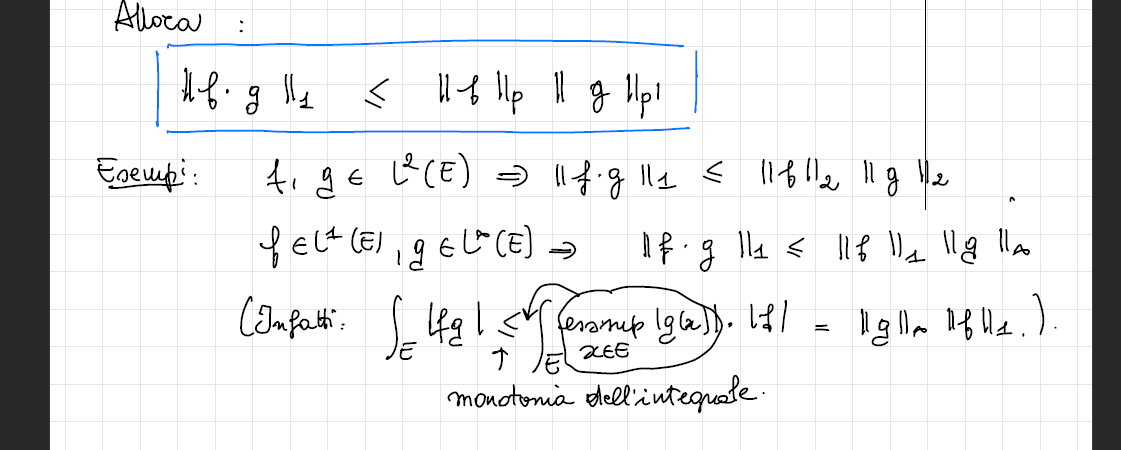 Allora :
‖f·g‖₁ ≤ ‖f‖p ‖g‖p'
Esempi: f, g ∈ L²(E) ⇒ ‖f·g‖₁ ≤ ‖f‖₂ ‖g‖₂
f ∈ L¹(E), g ∈ L^∞(E) ⇒ ‖f·g‖₁ ≤ ‖f‖₁ ‖g‖∞
(Infatti: ∫_E |fg| ≤ ∫_E (esssup |g(x)|)·|f| = ‖g‖∞ ‖f‖₁.).
↑ x∈E
monotonia dell'integrale.